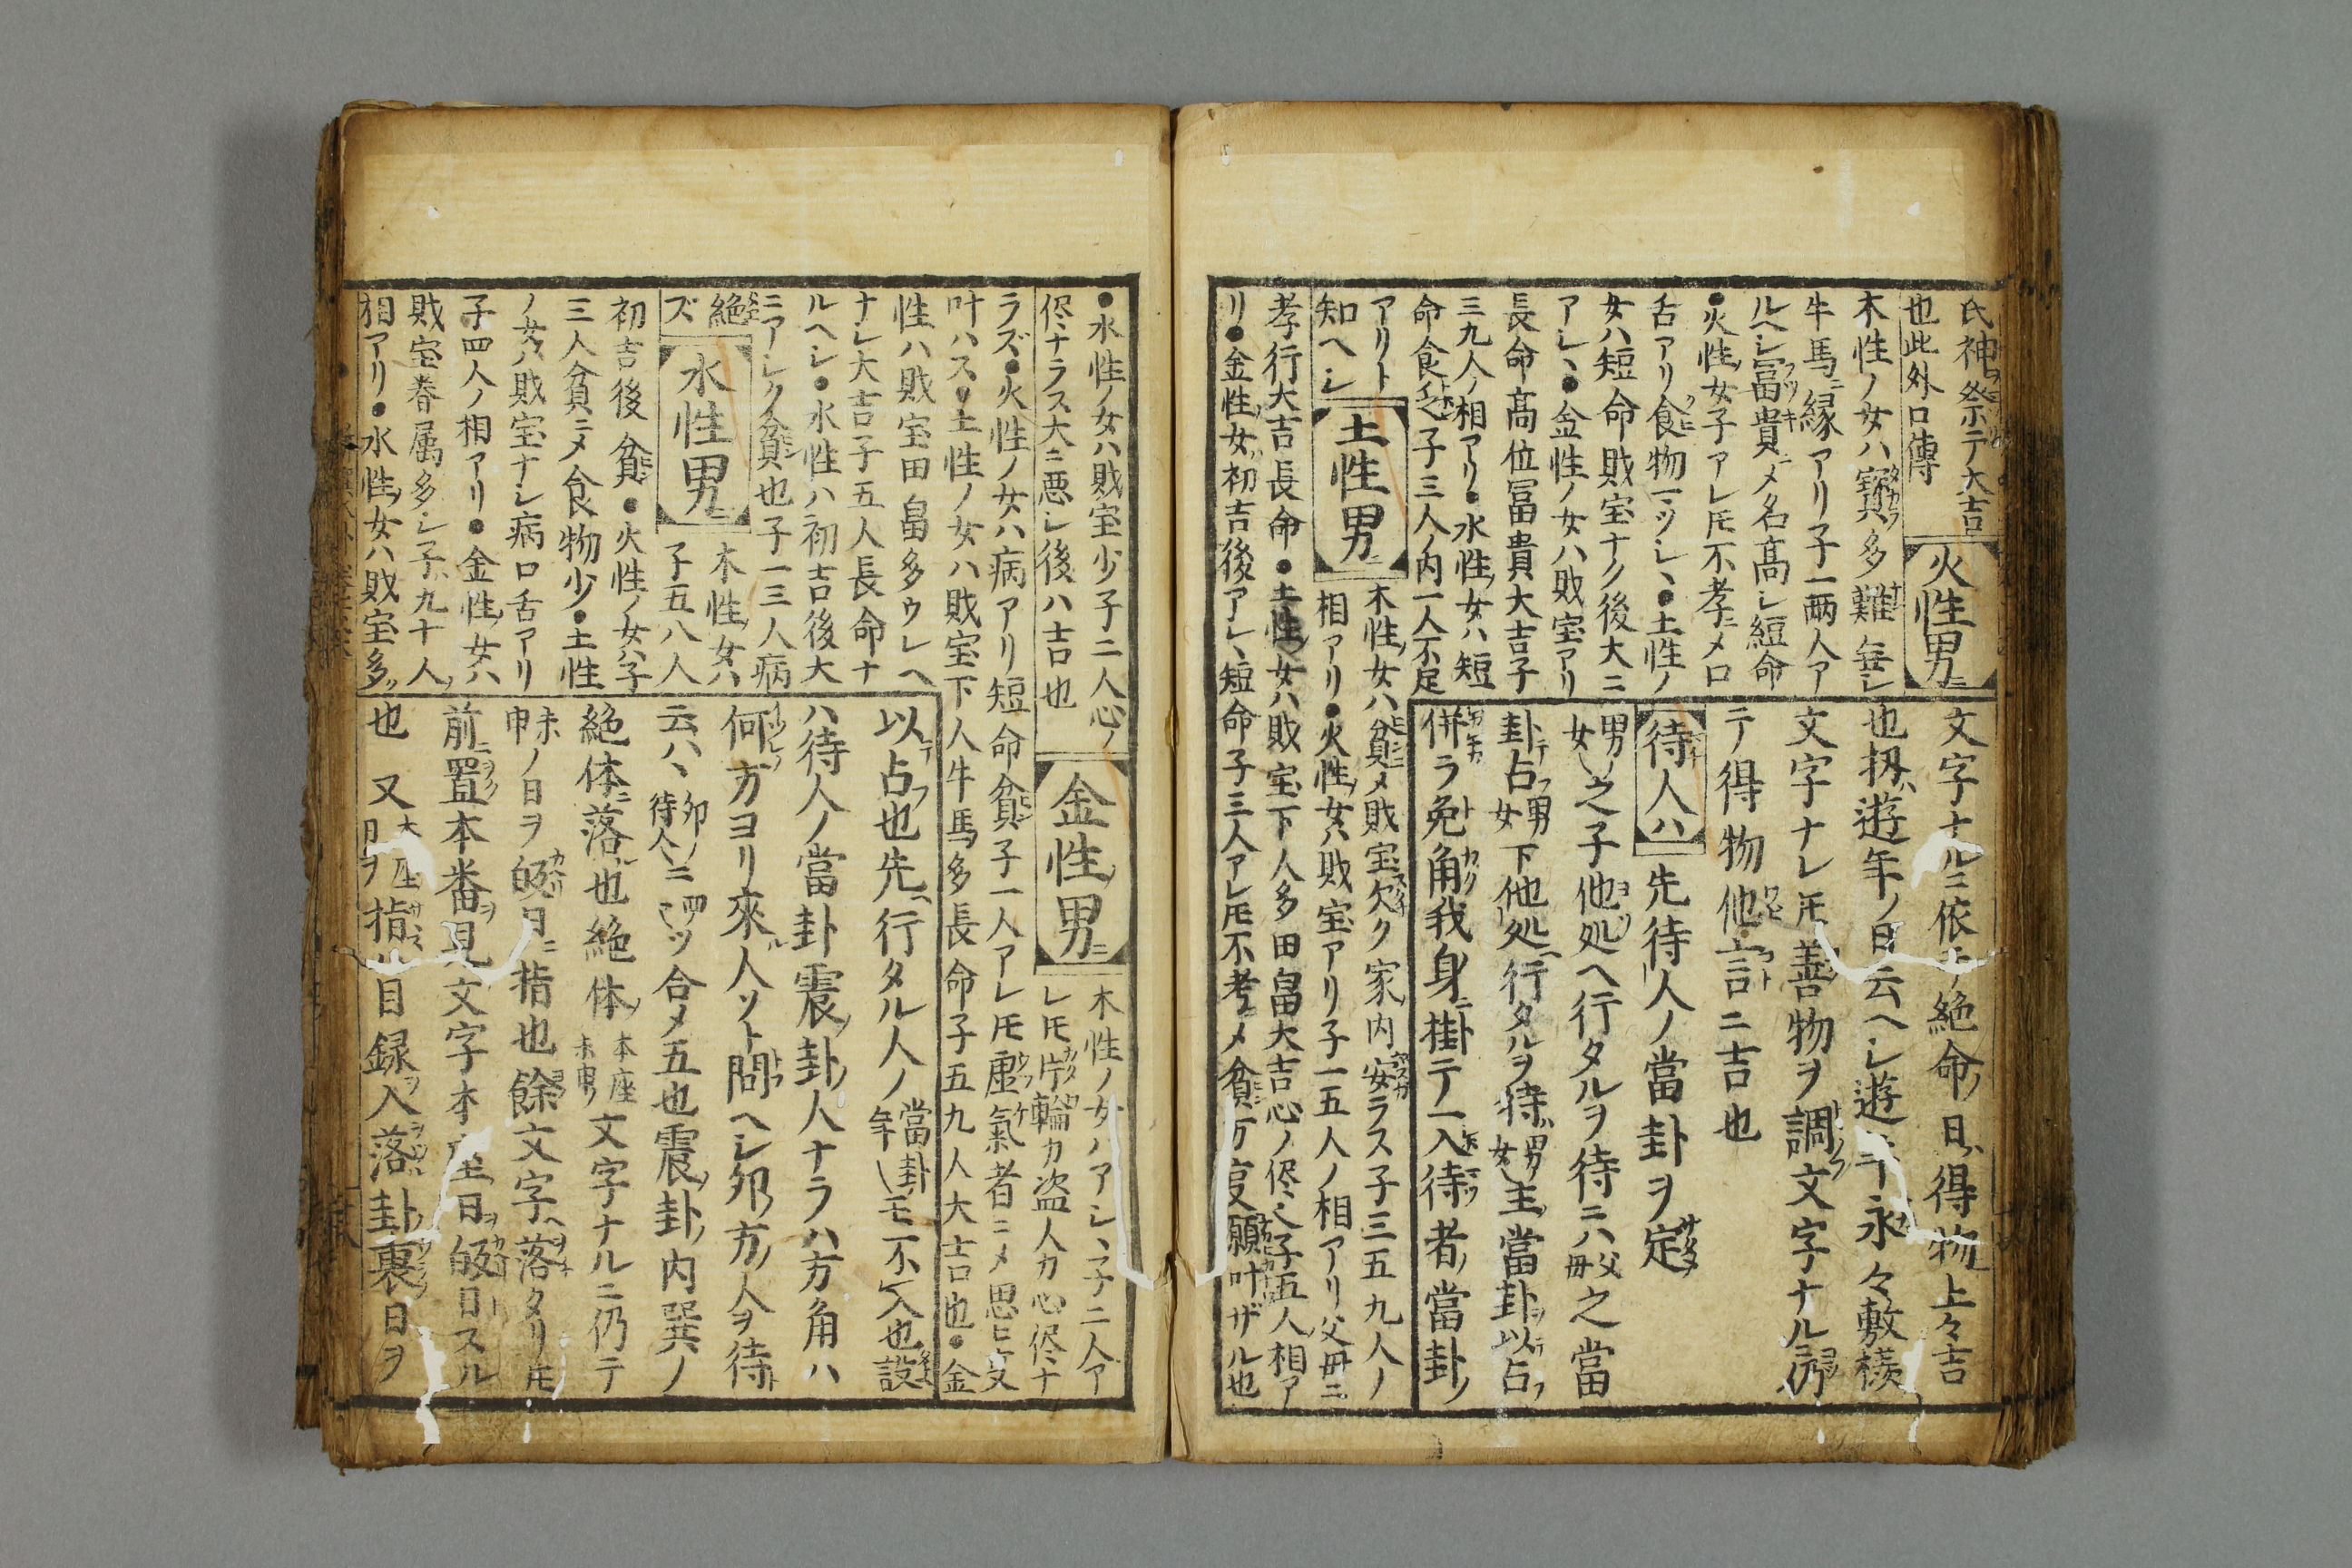 氏神祭テ大吉
也此外口傳
火性男ニ
木性ノ女ハ寳多難無シ
牛馬ニ縁アリ子一両人ア
ルヘシ冨貴ニメ名髙シ短命
●火性ノ女子アレ𪜈不孝ニメ口
舌アリ食物一ツシヽ●土性ノ
女ハ短命財宝ナク後大ニ
アシヽ●金性ノ女ハ財宝アリ
長命髙位冨貴大吉子
三九人ノ相アリ●水性ノ女ハ短
命食乏子三人ノ内一人不足
アリト
知ヘシ
土性男ニ
木性ノ女ハ貧メ財宝欠ク家内安ラス子三五九人ノ
相アリ●火性ノ女ハ財宝アリ子一五人ノ相アリ父母ニ
孝行大吉長命●土性ノ女ハ財宝下人多田畠大吉心ノ侭也子五人ノ相ア
リ●金性ノ女ハ初吉後アシヽ短命子三人アレ𪜈不孝ニメ貧万叓願叶ザル也
文字ナルニ依テ絶命ノ日ハ得物上々吉
也扨ハ遊年ノ日云ヘシ遊年永々敷様
文字ナレ𪜈善物ヲ調文字ナルニ仍
テ得物他言ニ吉也
待人ハ
先待人ノ當卦ヲ定
男女之子他処ヘ行タルヲ待ニハ父母之當
卦占男女下他処行タルヲ待ハ男女主ノ當卦ヲ以占
併ラ免角我身ニ掛テ入待者ノ當卦ノ
●水性ノ女ハ財宝少子二人心ノ
侭ナラス大ニ悪シ後ハ吉也
金性男ニ
木性ノ女ハアシヽ子二人ア
レ𪜈片輪カ盗人カ心侭ナ
ラズ●火性ノ女ハ病アリ短命貧子一人アレ𪜈虚氣者ニメ思ヒ叓
叶ハス●土性ノ女ハ財宝下人牛馬多長命子五九人大吉也●金
性ハ財宝田畠多ウシヘ
ナレ大吉子五人長命ナ
ルヘシ●水性ハ初吉後大
ニアシク貧也子一三人病
絶ズ
水性男ニ
木性ノ女ハ
子五八人
初吉後貧●火性ノ女ハ子
三人貧ニメ食物少●土性
ノ女ハ財宝ナシ病口舌アリ
子四人ノ相アリ●金性ノ女ハ
財宝眷属多シ子ハ九十人ノ
相アリ●水性ノ女ハ財宝多ソ
以占也先行タル人ノ當卦年モ不入也設
ハ待人ノ當卦震ノ卦ノ人ナラハ方角ハ
何方ヨリ來ル人ソト問ヘシ夘ノ方ノ人ヲ待ト
云ハヽ夘ノ待人ニ四ツ合メ五也震ノ卦ノ内巽ノ
絶体ニ落也絶体ノ本座未申文字ナルニ仍テ
未申ノ日ヲ皈日ニ指也餘文字ヘ落タリ𪜈
前ニ置本番ヲ見文字本座ノ日ヲ皈日スル
也 又大座日ヲ指ハ目録ヲ入落卦ノ裏ノ日ヲ